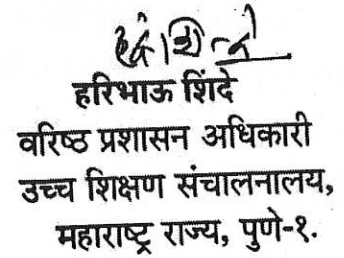 हरिभाऊ शिंदे
वरिष्ठ प्रशासन अधिकारी
उच्च शिक्षण संचालनालय,
महाराष्ट्र राज्य, पुणे-१.